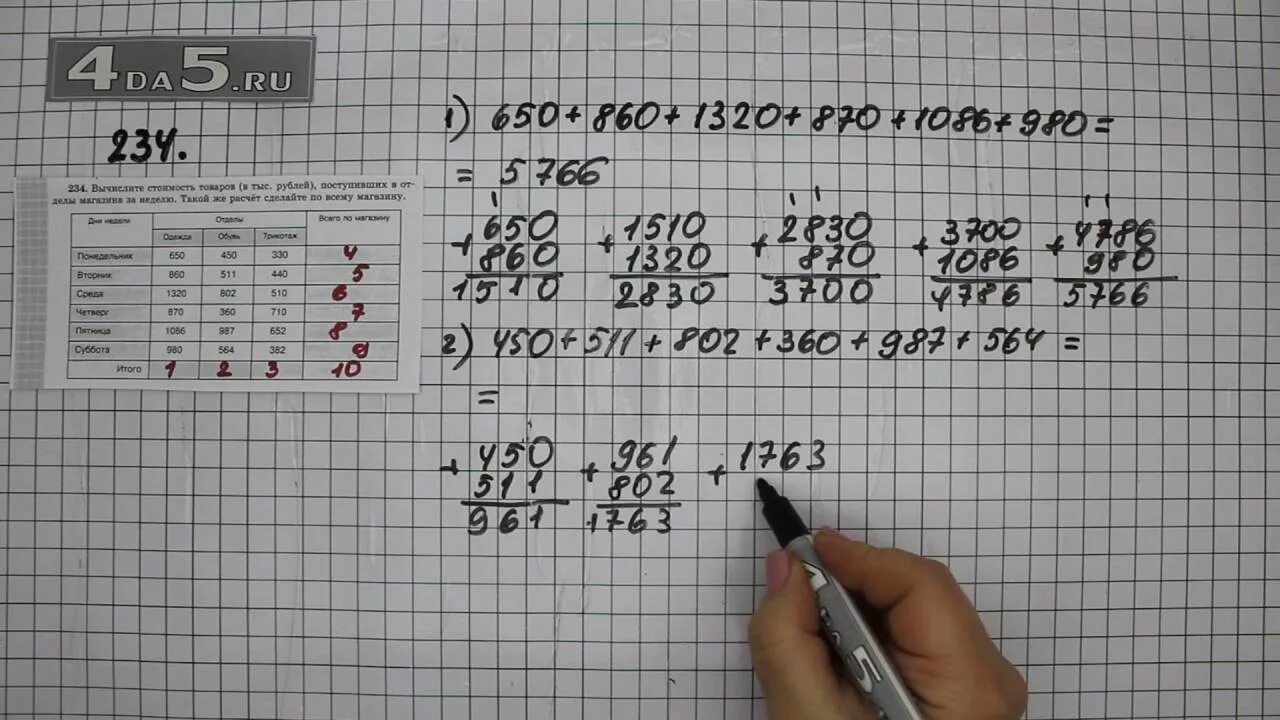 4DA5.RU
234.
234. Вычислите стоимость товаров (в тыс. рублей), поступивших в от-
делы магазина за неделю. Такой же расчёт сделайте по всему магазину.
Дни недели Отделы Всего по магазину
Одежда Обувь Трикотаж
Понедельник 650 450 330 4
Вторник 860 511 440 5
Среда 1320 802 510 6
Четверг 870 360 710 7
Пятница 1086 987 652 8
Суббота 980 564 382 9
Итого 1 2 3 10
1) 650+860+1320+870+1086+980=
= 5766
1 1 1 1 1
+650 +1510 +2830 +3700 +4786
860 1320 870 1086 980
1510 2830 3700 4786 5766
2) 450+511+802+360+987+564=
=
+450 +961 +1763
511 802
961 1763
5